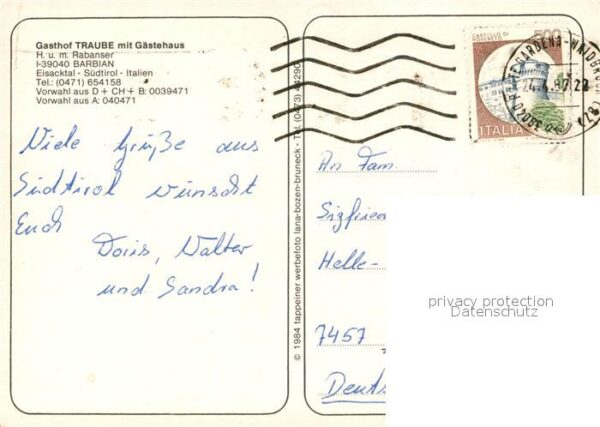 Gasthof TRAUBE mit Gästehaus
H. u. m. Rabanser
I-39040 BARBIAN
Eisacktal - Südtirol - Italien
Tel: (0471) 654158
Vorwahl aus D + CH + B: 0039471
Vorwahl aus A: 040471
Viele Grüße aus
Südtirol wünscht
Euch
Doris, Walter
und Sandra!
© 1984 tappeiner werbefoto lana-bozen-bruneck • Tel. (0473)
CASTELLO DI
ROVERETO
500
ITALIA
GARDENA-WAIDBRUCK
An Fam.
Sigfried
Helle-
7457
Deuts
privacy protection
Datenschutz